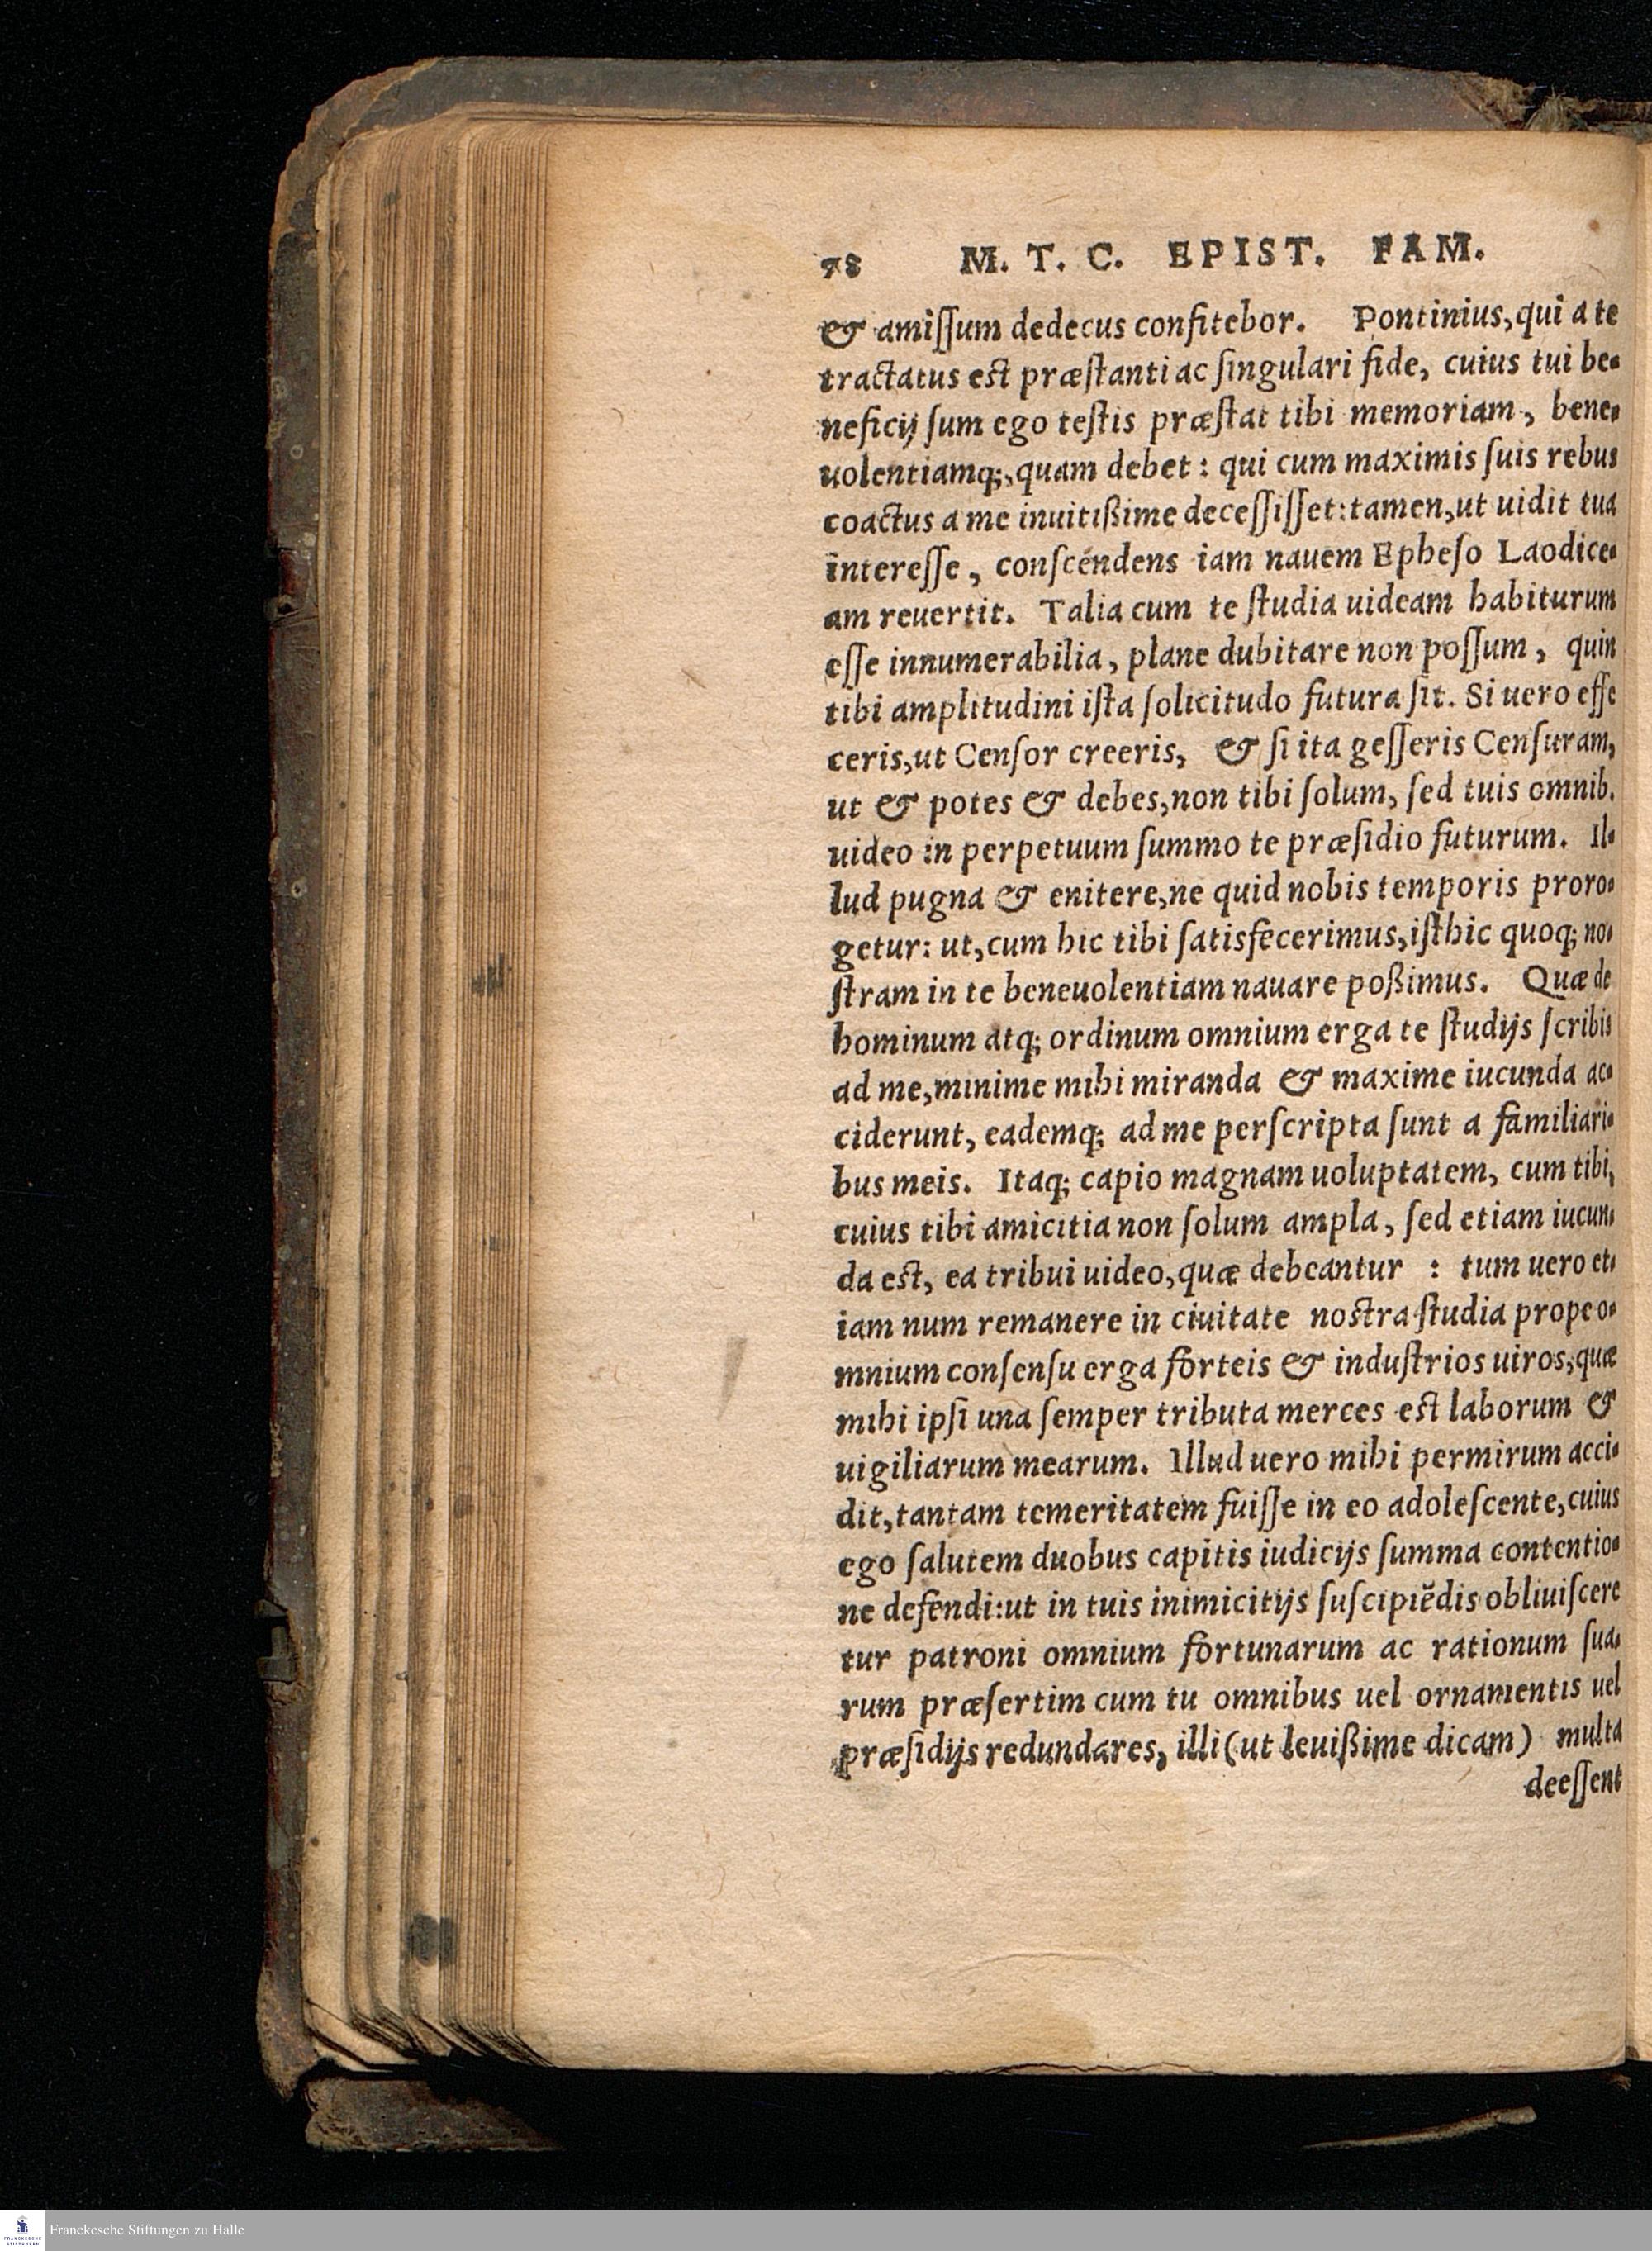 78 M. T. C. EPIST. FAM.
& amiſſum dedecus confitebor. Pontinius, qui a te
tractatus est præſtanti ac ſingulari fide, cuius tui be-
neficij ſum ego teſtis præſtat tibi memoriam, bene-
uolentiamq;, quam debet: qui cum maximis ſuis rebus
coactus a me inuitißime deceſſiſſet: tamen, ut uidit tua
intereſſe, conſcéndens iam nauem Epheſo Laodice-
am reuertit. Talia cum te ſtudia uideam habiturum
eſſe innumerabilia, plane dubitare non poſſum, quin
tibi amplitudini iſta ſolicitudo futura ſit. Si uero effe
ceris, ut Cenſor creeris, & ſi ita geſſeris Cenſuram,
ut & potes & debes, non tibi ſolum, ſed tuis omnib.
uideo in perpetuum ſummo te præſidio futurum. Il-
lud pugna & enitere, ne quid nobis temporis proro-
getur: ut, cum hic tibi ſatisfecerimus, iſthic quoq; no-
ſtram in te beneuolentiam nauare poßimus. Quæ de
hominum atq; ordinum omnium erga te ſtudijs ſcribis
ad me, minime mihi miranda & maxime iucunda ac-
ciderunt, eademq; ad me perſcripta ſunt a familiari-
bus meis. Itaq; capio magnam uoluptatem, cum tibi,
cuius tibi amicitia non ſolum ampla, ſed etiam iucun-
da est, ea tribui uideo, quæ debeantur : tum uero et-
iam num remanere in ciuitate nostra ſtudia prope o-
mnium conſenſu erga forteis & induſtrios uiros, quæ
mihi ipſi una ſemper tributa merces est laborum &
uigiliarum mearum. Illud uero mihi permirum acci-
dit, tantam temeritatem fuiſſe in eo adoleſcente, cuius
ego ſalutem duobus capitis iudicijs ſumma contentio-
ne defendi: ut in tuis inimicitijs ſuſcipiēdis obliuiſcere
tur patroni omnium fortunarum ac rationum ſua-
rum præſertim cum tu omnibus uel ornamentis uel
præſidijs redundares, illi (ut leuißime dicam) multa
deeſſent
Franckesche Stiftungen zu Halle
FRANCKESCHE
STIFTUNGEN